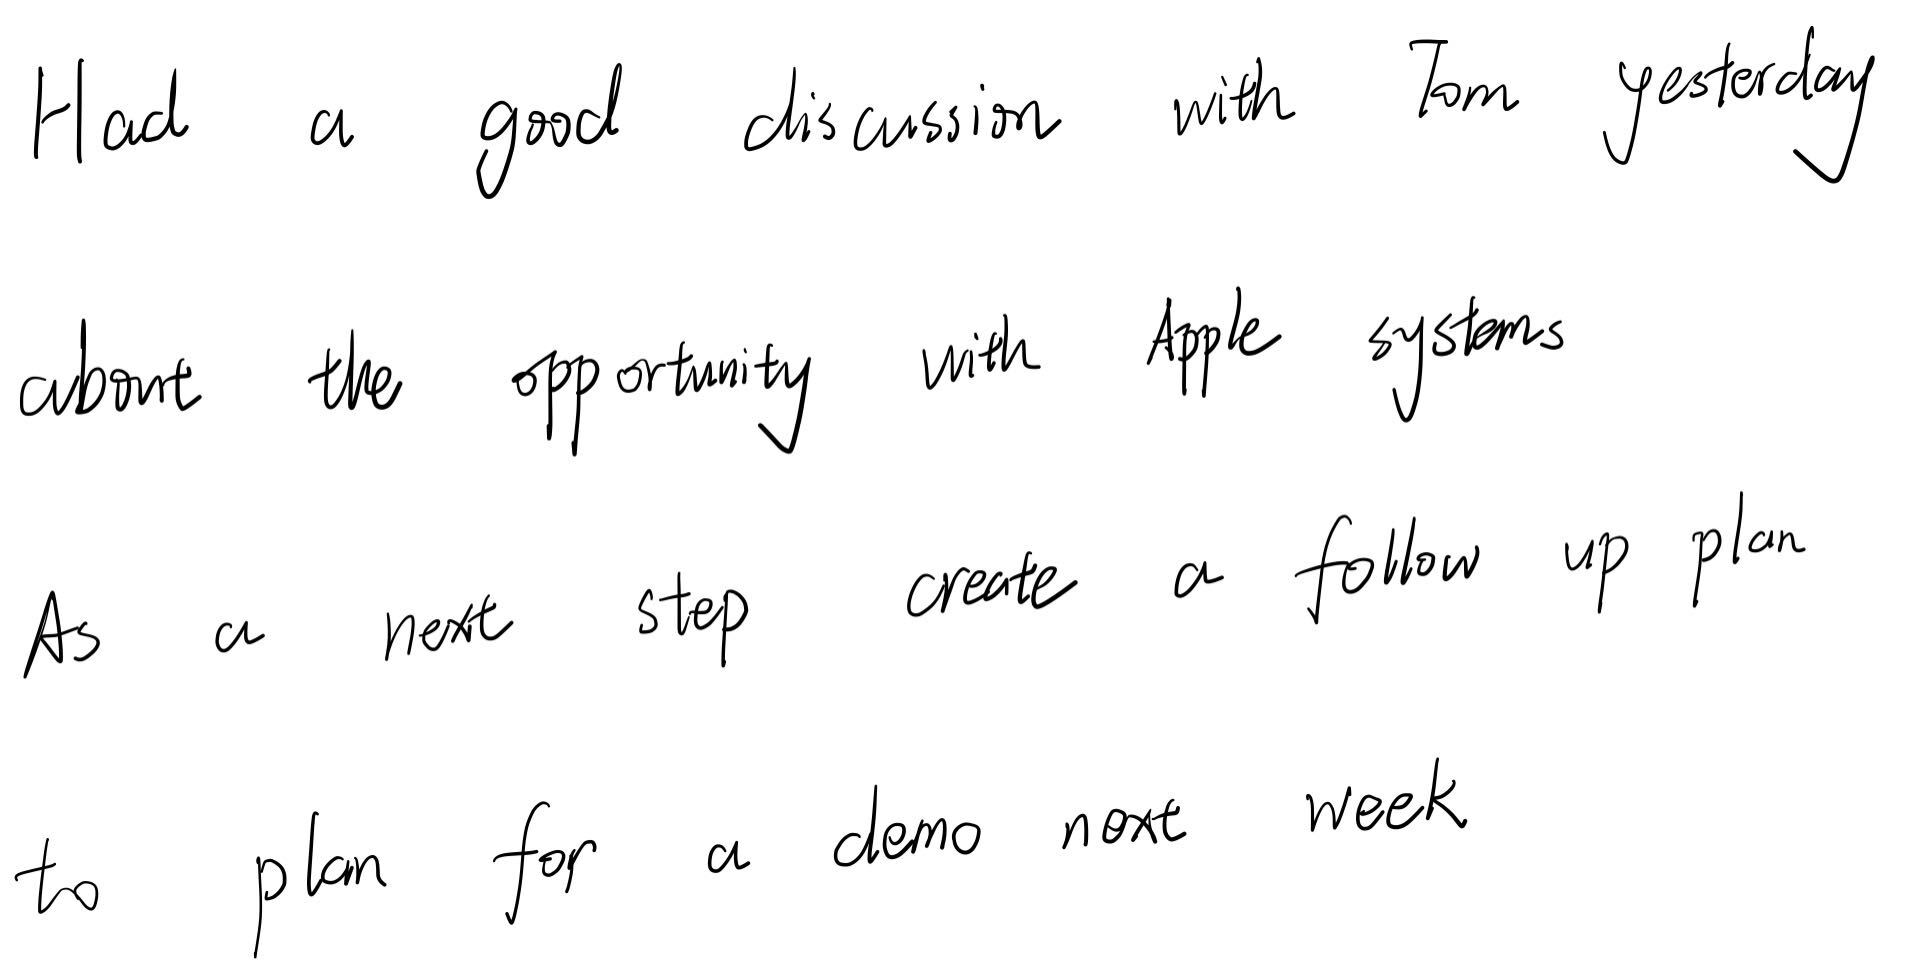 Had a good discussion with Tom yesterday
about the opportunity with Apple systems
As a next step create a follow up plan
to plan for a demo next week